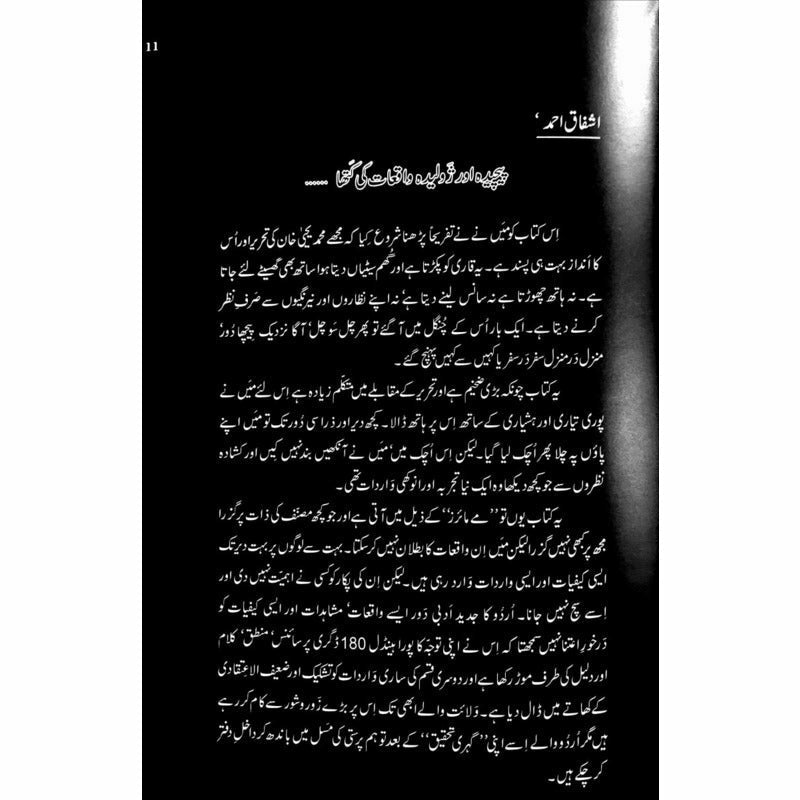 11
اشفاق احمد ‘
پیچیدہ اور ژولیدہ واقعات کی کتھا ......
اِس کتاب کو میں نے نے تفریحاً پڑھنا شروع کِیا کہ مجھے محمد یحییٰ خان کی تحریر اور اُس
کا اَنداز بہت ہی پسند ہے۔ یہ قاری کو پکڑتا ہے اور گھُم سیٹیاں دیتا ہوا ساتھ بھی گھسیٹے لئے جاتا
ہے۔ نہ ہاتھ چھوڑتا ہے نہ سانس لینے دیتا ہے‘ نہ اپنے نظاروں اور نیرنگیوں سے صَرفِ نظر
کرنے دیتا ہے۔ ایک بار اُس کے چُنگل میں آ گئے تو پھر چل سَو چل‘ آگا نزدیک پیچھا دُور‘
منزل دَر منزل سفر دَر سفر یا کہیں سے کہیں پہنچ گئے۔
یہ کتاب چونکہ بڑی ضخیم ہے اور تحریر کے مقابلے میں متکلّم زیادہ ہے اِس لئے میں نے
پوری تیاری اور ہشیاری کے ساتھ اِس پر ہاتھ ڈالا۔ کچھ دیر اور ذرا سی دُور تک تو میں اپنے
پاؤں پہ چلا پھر اُچک لیا گیا۔ لیکن اِس اُچک میں‘ میں نے آنکھیں بند نہیں کیں اور کشادہ
نظروں سے جو کچھ دیکھا وہ ایک نیا تجربہ اور انوکھی وَاردات تھی۔
یہ کتاب یوں تو ’’مے مائرز‘‘ کے ذیل میں آتی ہے اور جو کچھ مصنّف کی ذات پر گزرا
مجھ پر کبھی نہیں گزرا لیکن میں اِن واقعات کا بطلان نہیں کر سکتا۔ بہت سے لوگوں پر بہت دیر تک
ایسی کیفیات اور ایسی واردات وَارد رہی ہیں۔ لیکن اِن کی پکار کو کسی نے اہمیّت نہیں دی اور
اِسے سچ نہیں جانا۔ اُردُو کا جدید اَدبی دَور ایسے واقعات‘ مشاہدات اور ایسی کیفیات کو
دَرخورِ اعتنا نہیں سمجھتا کہ اِس نے اپنی توجّہ کا پورا ہینڈل 180 ڈگری پر سائنس‘ منطق‘ کلام
اور دلیل کی طرف موڑ رکھا ہے اور دوسری قسم کی ساری وَاردات کو تشکیک اور ضعیف الاِعتقادی
کے کھاتے میں ڈال دیا ہے۔ وَلائت والے ابھی تک اِس پر بڑے زَور و شور سے کام کر رہے
ہیں مگر اُردُو والے اِسے اپنی ’’گہری تحقیق‘‘ کے بعد توہم پرستی کی مَسل میں باندھ کر داخلِ دفتر
کر چکے ہیں۔